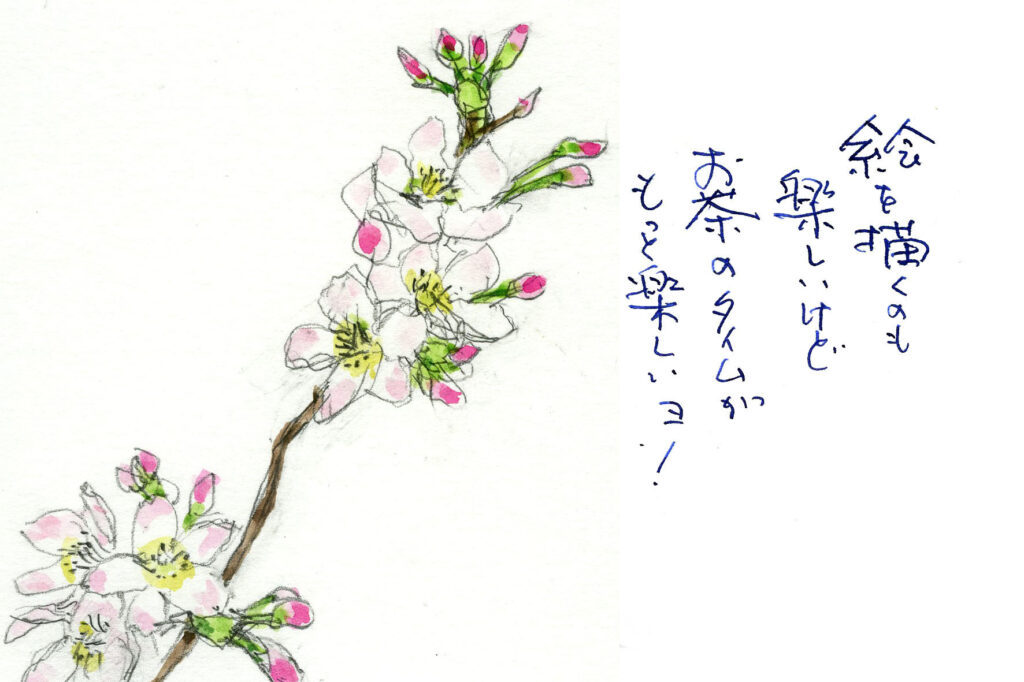 絵を描くのも
楽しいけど
お茶のタイムが
もっと楽しいヨ!